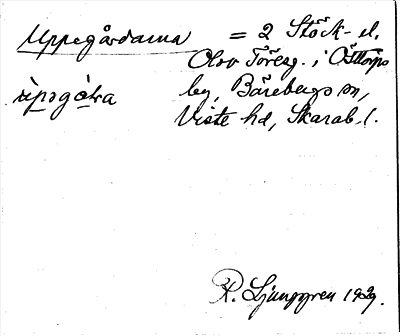 Uppegårdarna = 2 Stöck- el.
Olov Töresg. i Östtorps
by, Bärebergs sn,
Viste hd, Skarab. l.
R. Ljunggren 1929.